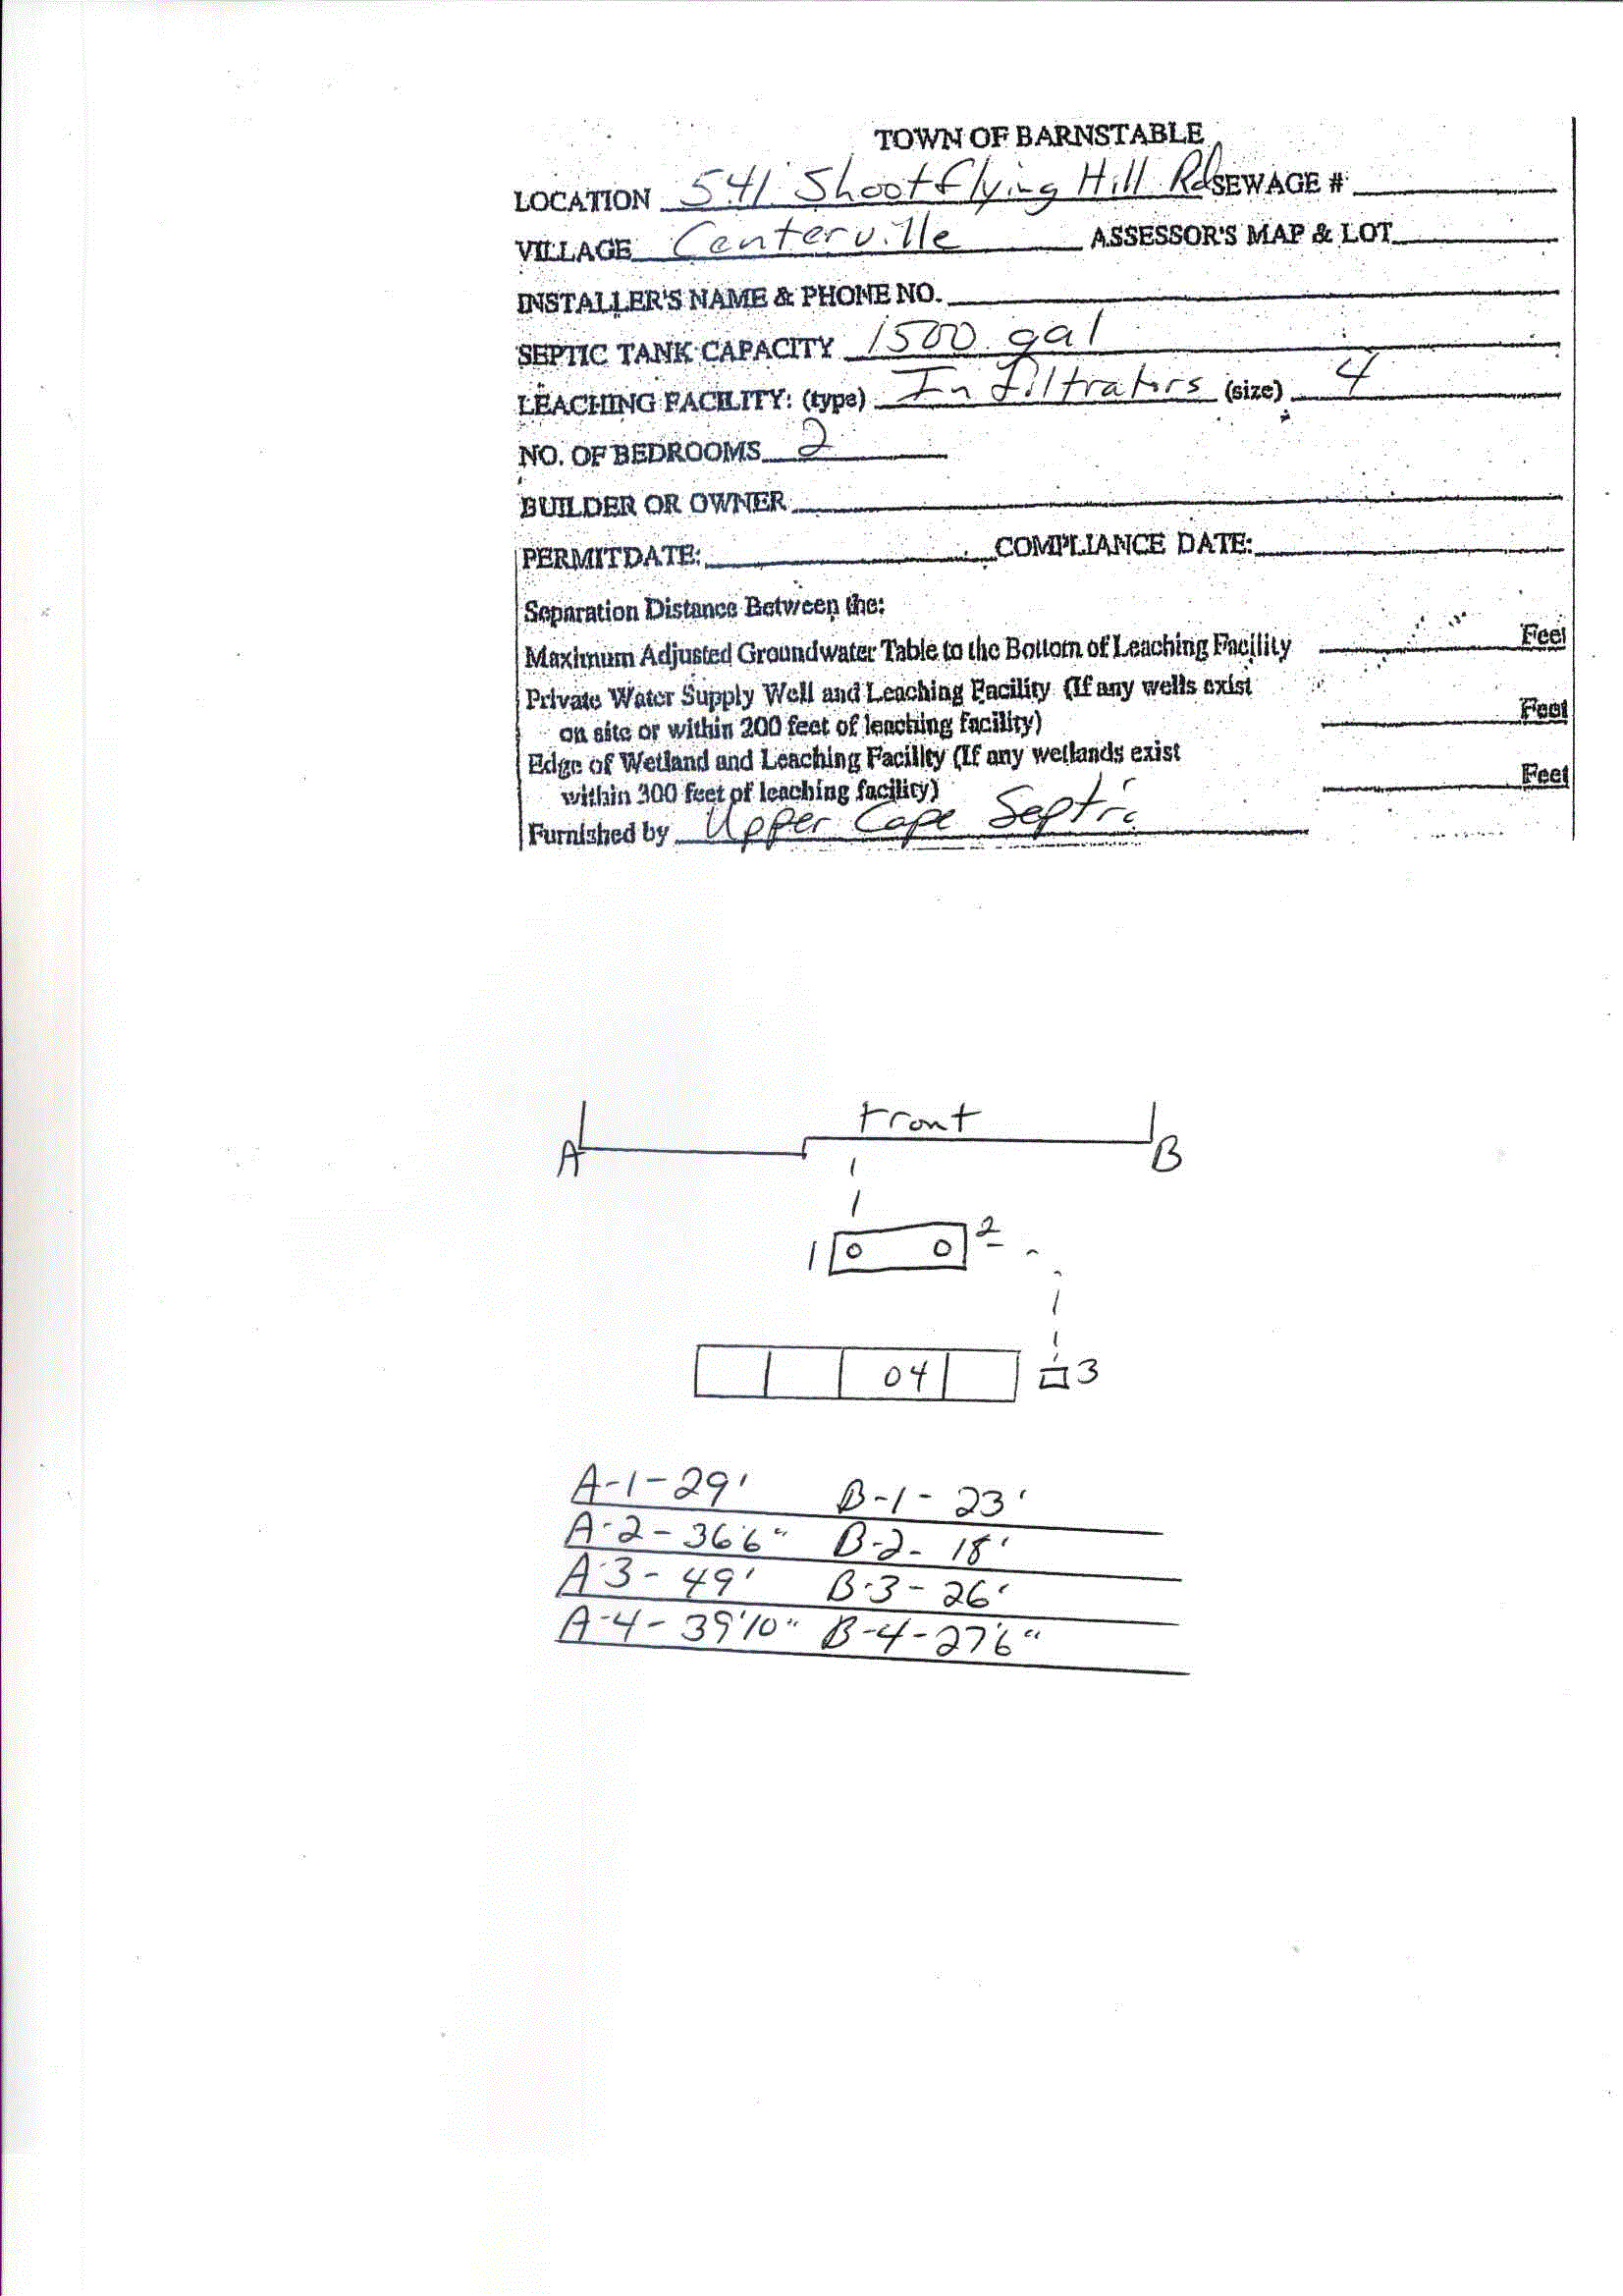 TOWN OF BARNSTABLE
LOCATION 541 Shootflying Hill Rd SEWAGE #
VILLAGE Centerville ASSESSOR'S MAP & LOT
INSTALLER'S NAME & PHONE NO.
SEPTIC TANK CAPACITY 1500 gal
LEACHING FACILITY: (type) Infiltrators (size) 4
NO. OF BEDROOMS 2
BUILDER OR OWNER
PERMITDATE: COMPLIANCE DATE:
Separation Distance Between the:
Maximum Adjusted Groundwater Table to the Bottom of Leaching Facility Feet
Private Water Supply Well and Leaching Facility (If any wells exist
on site or within 200 feet of leaching facility) Feet
Edge of Wetland and Leaching Facility (If any wetlands exist
within 300 feet of leaching facility) Feet
Furnished by Upper Cape Septic
Front
A B
1 2
04 3
A-1-29' B-1-23'
A-2-36'6" B-2-18'
A-3-49' B-3-26'
A-4-39'10" B-4-27'6"